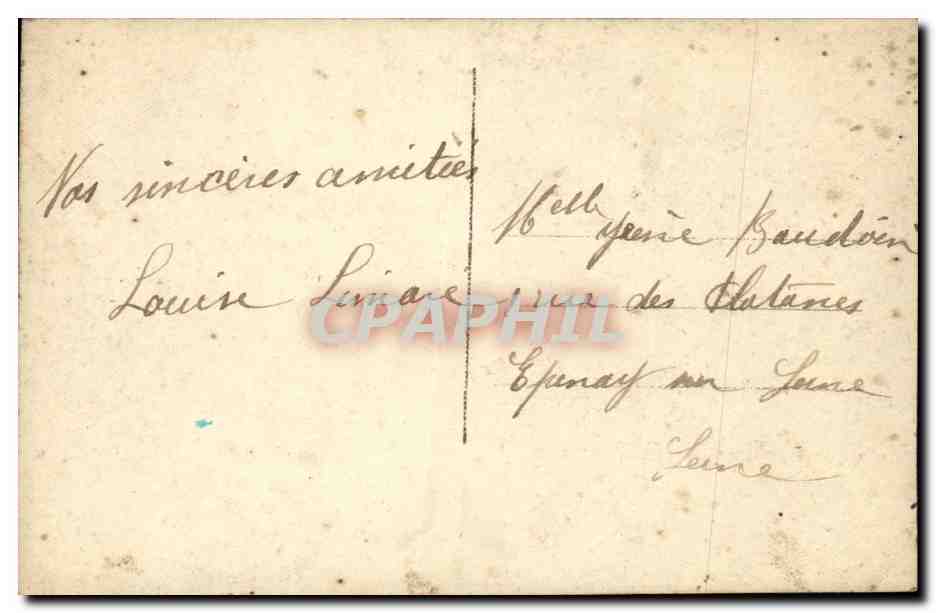 Nos sincères amitiés
Louise
Melle Baudoin
rue des Platanes
Epinay sur Seine
Seine
CPAPHIL